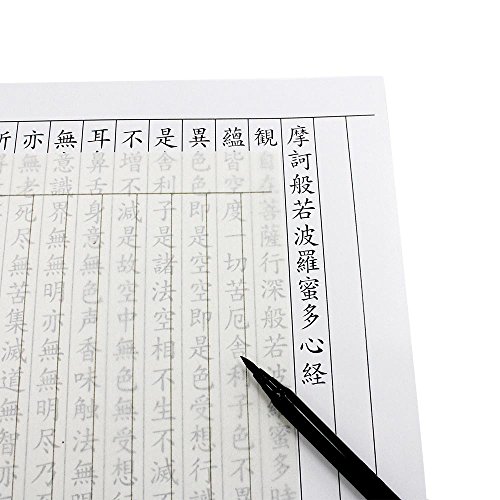 摩訶般若波羅蜜多心経
観自在菩薩行深般若波羅蜜多時
蘊皆空度一切苦厄舎利子色不
異色色即是空空即是色受想行識
是舎利子是諸法空相不生不滅不
不増不減是故空中無色無受想行
耳鼻舌身意無色声香味触法無
無意識界無無明亦無無明尽乃
亦無老死尽無苦集滅道無智亦